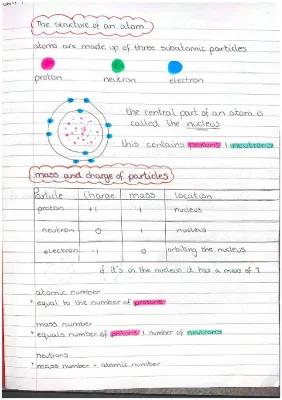 The structure of an atom
atoms are made up of three subatomic particles
proton neutron electron
the central part of an atom is
called the nucleus
this contains protons + neutrons
mass and charge of particles
Particle Charge mass Location
proton +1 1 nucleus
neutron 0 1 nucleus
electron -1 0 orbiting the nucleus
if it's in the nucleus it has a mass of 1
atomic number
equal to the number of protons
mass number
equals number of protons + number of neutrons
neutrons
mass number - atomic number